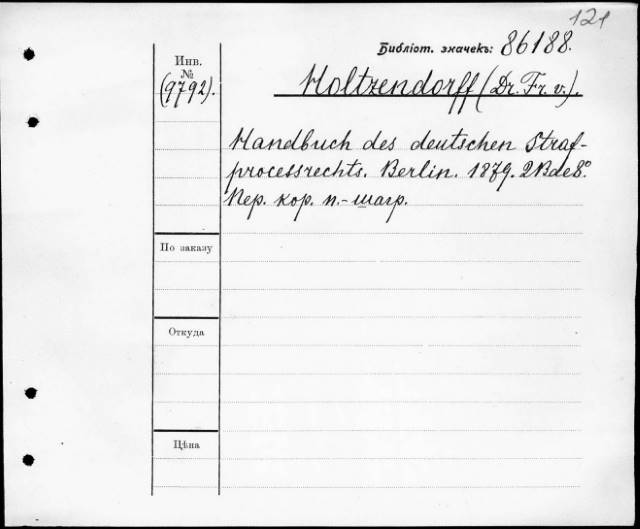 121
Библіот. значекъ: 86188.
Инв.
№
(9792).
Holtzendorff (Dr. Fr. v.).
Handbuch des deutschen Straf-
processrechts. Berlin. 1879. 2 Bde 8º
Пер. кор. п.-шагр.
По заказу
Откуда
Цѣна